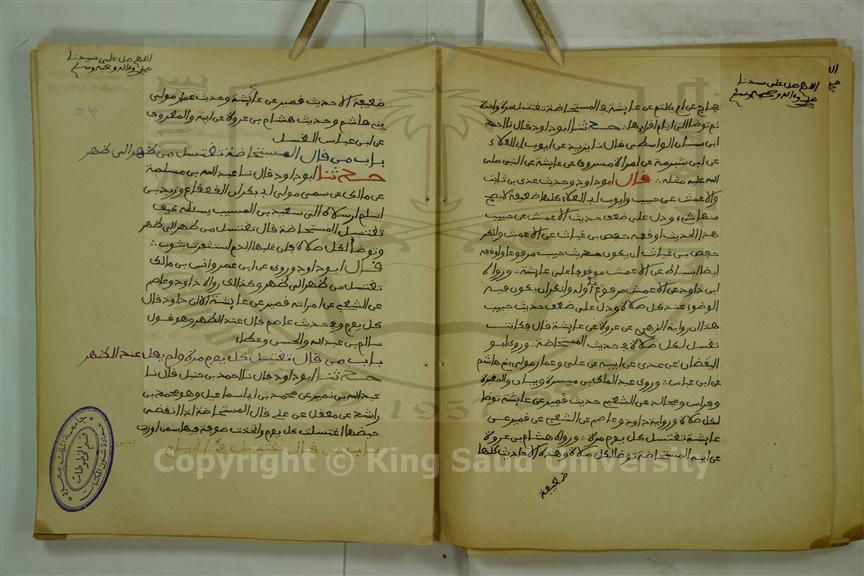 اللهم صل على سيدنا
محمد وءاله وصحبه وسلم
حجاج عن ام كلثوم عن عايشة في المستحاضة تغتسل مرة واحدة
ثم توضا الى ايام اقرايها حدثنا ابو داود قال نا احمد
ابن سنان الواسطي قال نا يزيد عن ايوب ابي العلاء
عن ابن شبرمة عن امراة مسروق عن عايشة عن النبي صلى
الله عليه مثله قال ابو داود وحديث عدي بن ثابت
والاعمش عن حبيب وايوب ابي العلاء كلها ضعيفة لا يصح
منها شيء ودل على ضعف حديث الاعمش عن حبيب
هذا الحديث اوقفه حفص بن غياث عن الاعمش وانكر
حفص بن غياث ان يكون حديث حبيب مرفوعا واوقفه
ايضا اسباط عن الاعمش موقوفا على عايشة ورواه
ابن داود عن الاعمش مرفوعا اوله وانكر ان يكون فيه
الوضوء عند كل صلاة ودل على ضعف حديث حبيب
هذا ان رواية الزهري عن عروة عن عايشة قال فكانت
تغتسل لكل صلاة في حديث المستحاضة وروى ابو
اليقضان عن عدي عن ابيه عن علي وعمار مولى بني هاشم
عن ابن عباس وروى عبد الملك بن ميسرة وبيان والمغيرة
وفراس ومجالد عن الشعبي حديث قمير عن عايشة توضا
لكل صلاة ورواية داود وعاصم عن الشعبي عن قمير عن
عايشة تغتسل كل يوم مرة ورواه هشام بن عروة
عن ابيه المستحاضة توضا لكل صلاة وهذه الاحاديث كلها
ضعيفة
اللهم صل على سيدنا
محمد وءاله وصحبه وسلم
ضعيفة الا حديث قمير عن عايشة وحديث عمار مولى
بني هاشم وحديث هشام بن عروة عن ابيه والمعروف
عن ابن عباس الغسل
باب من قال المستحاضة تغتسل من ظهر الى ظهر
حدثنا ابو داود قال نا عبد الله بن مسلمة
عن مالك عن سمي مولى ابي بكر ان القعقاع وزيد بن
اسلم ارسلاه الى سعيد بن المسيب يسئله كيف
تغتسل المستحاضة قال تغتسل من ظهر الى ظهر
وتوضا لكل صلاة فان غلبها الدم استثفرت بثوب
قال ابو داود وروي عن ابن عمر وانس بن مالك
تغتسل من ظهر الى ظهر وكذلك رواه داود وعاصم
عن الشعبي عن امراته قمير عن عايشة الا ان داود قال
كل يوم وفي حديث عاصم قال عند الظهر وهو قول
سالم بن عبد الله والحسن وعطاء
باب من قال تغتسل كل يوم مرة ولم يقل عند الظهر
حدثنا ابو داود قال نا احمد بن حنبل قال نا
عبد الله بن نمير عن محمد بن ابي اسماعيل وهو محمد بن
راشد عن معقل عن علي قال المستحاضة اذا انقضى
حيضها اغتسلت كل يوم واتخذت صوفة فيها سمن او زيت
باب من قال تغتسل في الايام
جامعة الملك سعود
قسم المخطوطات
عمادة شؤون المكتبات
1957
Copyright © King Saud University